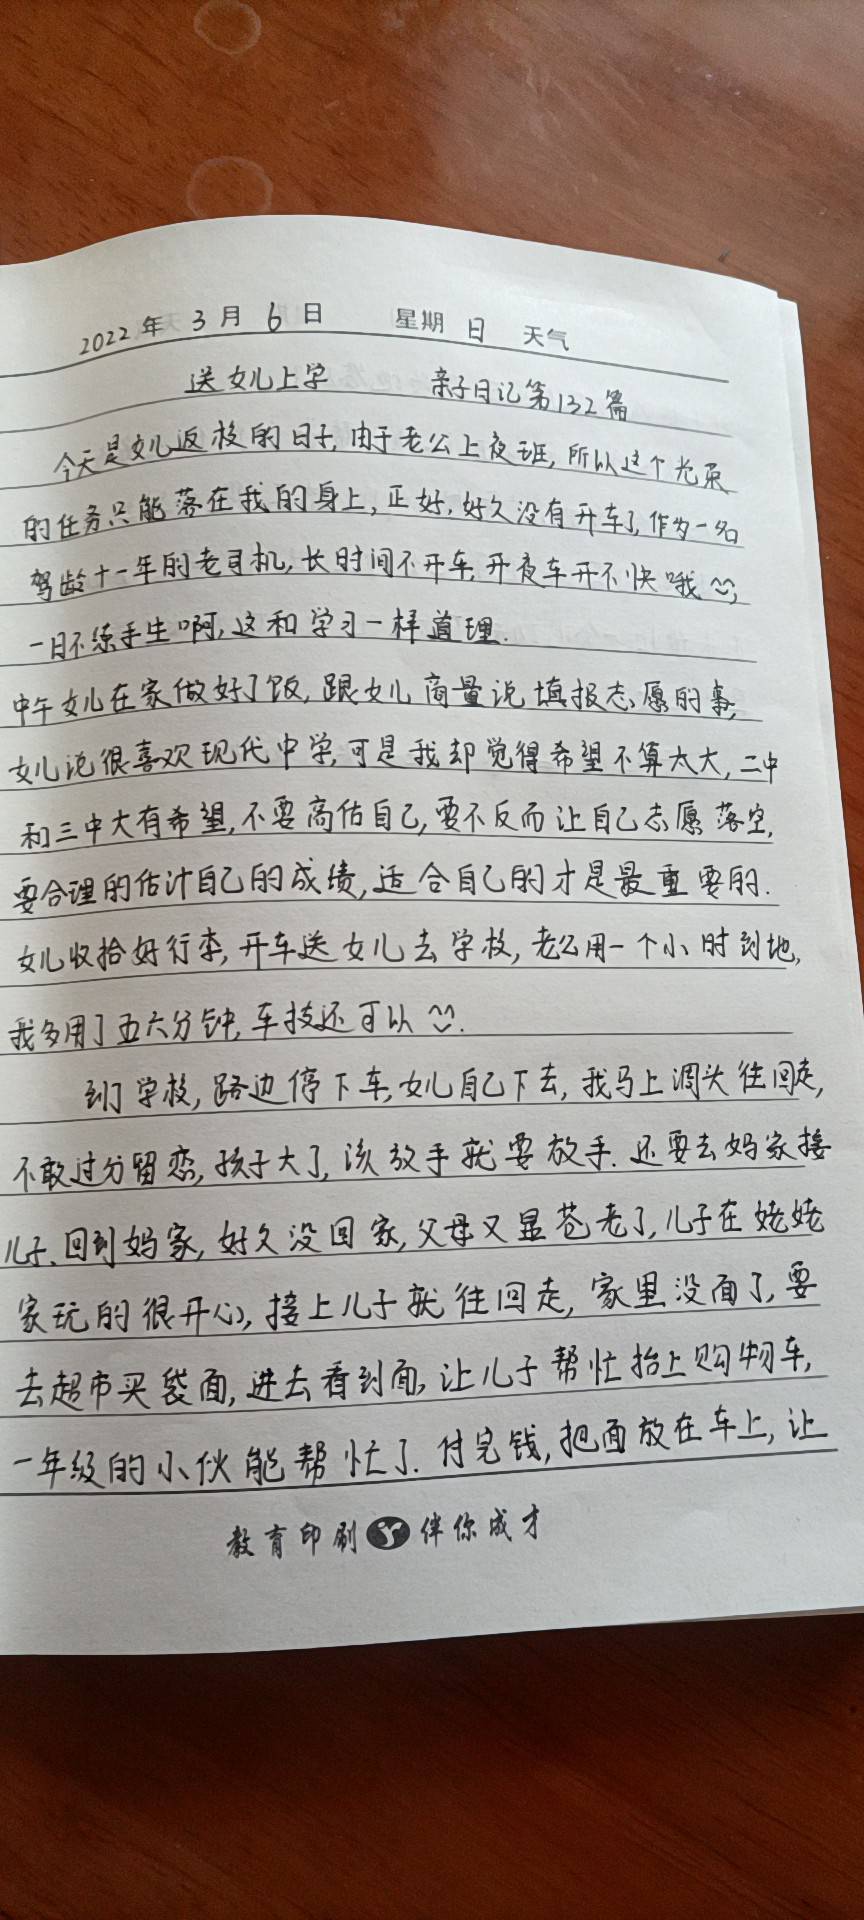 2022年 3月 6日 星期 日 天气
送女儿上学 亲子日记第132篇
今天是女儿返校的日子,由于老公上夜班,所以这个光荣
的任务只能落在我的身上,正好,好久没有开车了,作为一名
驾龄十一年的老司机,长时间不开车,开夜车开不快哦
一日不练手生啊,这和学习一样道理.
中午女儿在家做好了饭,跟女儿商量说填报志愿的事,
女儿说很喜欢现代中学,可是我却觉得希望不算太大,二中
和三中大有希望,不要高估自己,要不反而让自己志愿落空,
要合理的估计自己的成绩,适合自己的才是最重要的.
女儿收拾好行李,开车送女儿去学校,老公用一个小时到地,
我多用了五六分钟,车技还可以.
到了学校,路边停下车,女儿自己下去,我马上调头往回走,
不敢过分留恋,孩子大了,该放手就要放手.还要去妈家接
儿子、回到妈家,好久没回家,父母又显苍老了,儿子在姥姥
家玩的很开心,接上儿子就往回走,家里没面了,要
去超市买袋面,进去看到面,让儿子帮忙抬上购物车,
一年级的小伙能帮忙了.付完钱,把面放在车上,让
教育印刷 伴你成才